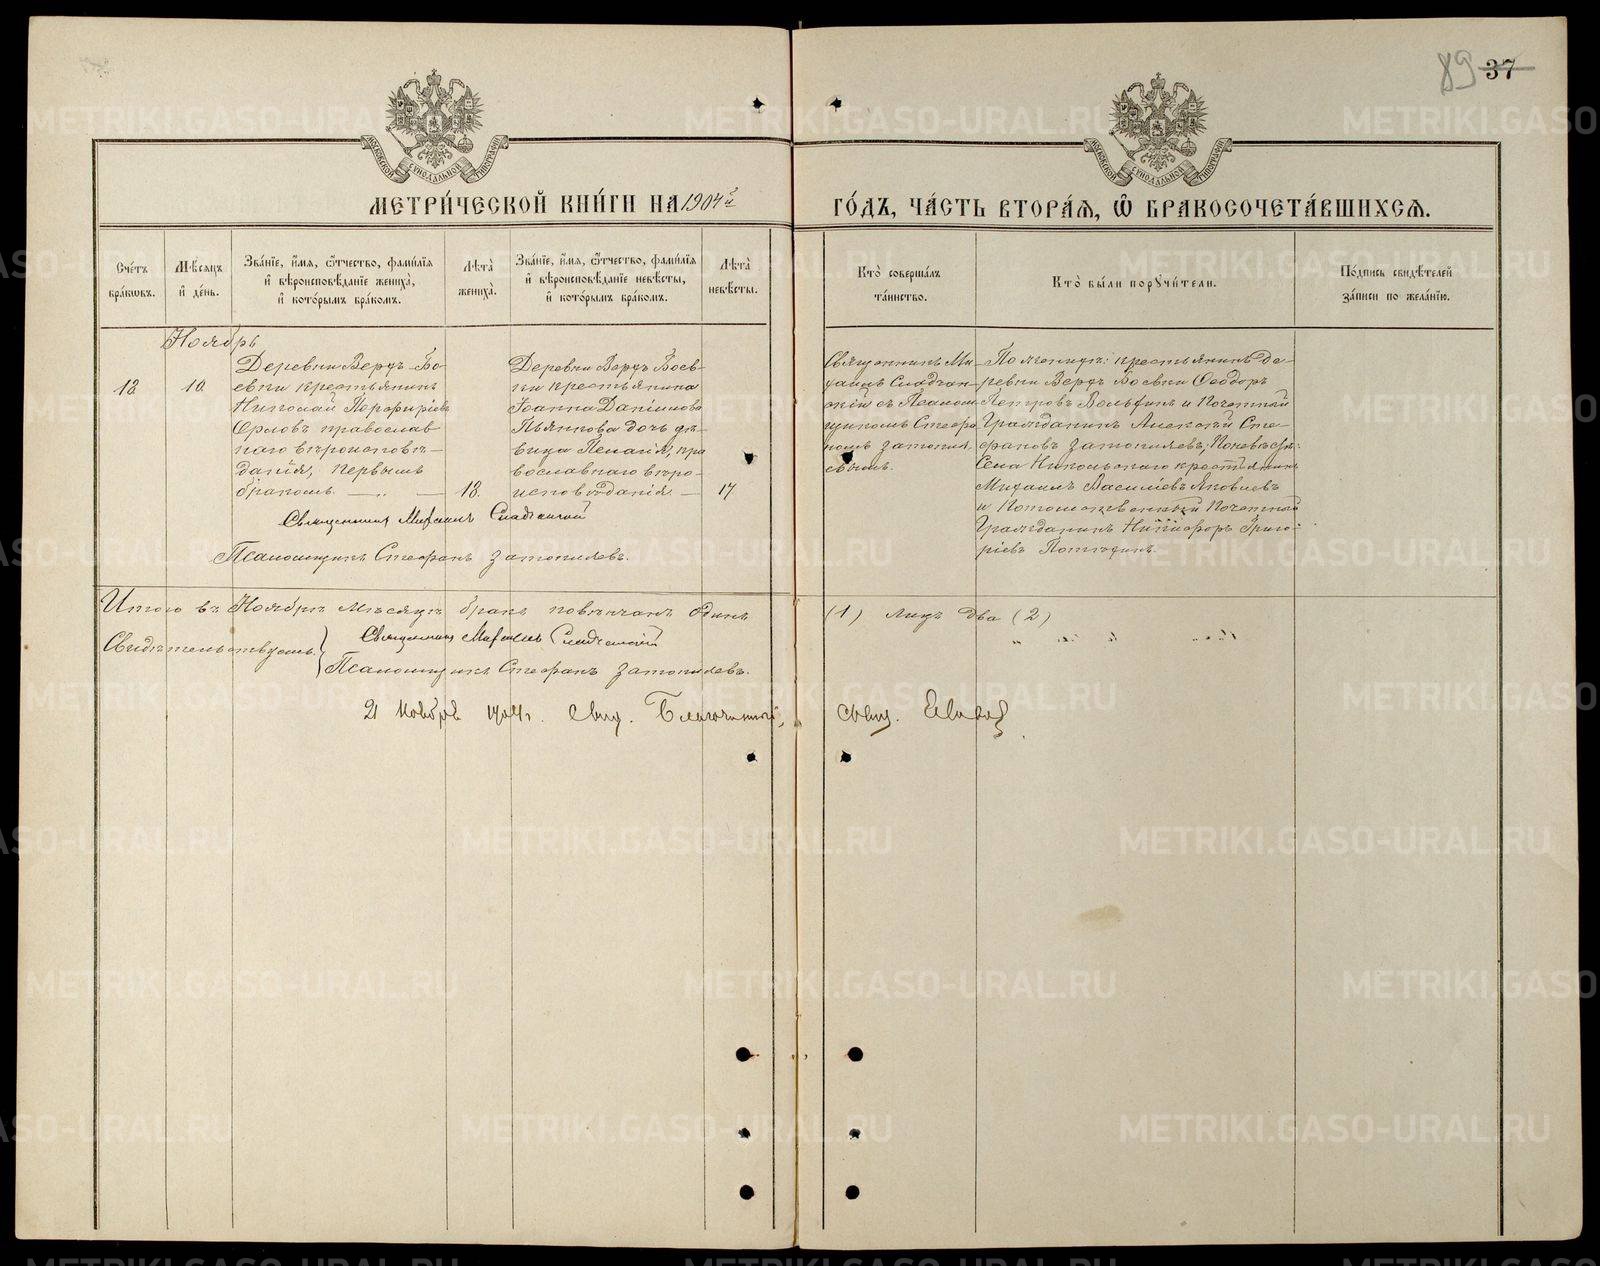 89 37
МОСКОВСКОЙ СѴНОДАЛЬНОЙ ТИПОГРАФІИ
МОСКОВСКОЙ СѴНОДАЛЬНОЙ ТИПОГРАФІИ
МЕТРИ́ЧЕСКОЙ КНИ́ГИ НА 1904й
ГО́ДЪ, ЧА́СТЬ ВТОРА́Я, Ѽ БРАКОСОЧЕТА́ВШИХСЯ.
Сче́тъ бра́кωвъ.
Мѣ́сяцъ и҆ де́нь.
Зва́нїе, и҆́мя, ѻ҆́тчество, фами́лїя и҆ вѣроисповѣ́данїе жениха̀, и҆ кото́рымъ бра́комъ.
Лѣта̀ жениха̀.
Зва́нїе, и҆́мя, ѻ҆́тчество, фами́лїя и҆ вѣроисповѣ́данїе невѣ́сты, и҆ кото́рымъ бра́комъ.
Лѣта̀ невѣ́сты.
Кто̀ соверша́лъ та́инство.
Кто̀ бы́ли порꙋчи́тели.
По́дпись свидѣ́телей за́писи по жела́нїю.
Ноябрь
18
10.
Деревни Верхъ-Бо-
евки крестьянинъ
Николай Порфиріевъ
Орловъ православ
наго вѣроисповѣ-
данія, первымъ
бракомъ.
18.
Деревни Верхъ Боев-
ки крестьянина
Іоанна Даніилова
Пьянкова дочь дѣ-
вица Пелагія, пра
вославнаго вѣро-
исповѣданія
17
Священникъ Ми-
хаилъ
скій съ Псалом-
щикомъ Стефа
номъ Затопля
евымъ.
По женихѣ: крестьянинъ де-
ревни Верхъ Боевки Ѳеодоръ
Петровъ и Почетный
Гражданинъ Алексѣй Сте-
фановъ Затопляевъ; По невѣстѣ:
Села Никольскаго крестьянинъ
Михаилъ Василіевъ Яковлевъ
и Потомственный Почетный
Гражданинъ Никифоръ Григо-
ріевъ
Священникъ Михаилъ
Псаломщикъ Стефанъ Затопляевъ.
Итого въ Ноябрѣ мѣсяцѣ бракъ повѣнчанъ одинъ (1) лицъ два (2)
Свидѣтельствуемъ:
Священникъ Михаилъ
Псаломщикъ Стефанъ Затопляевъ.
21 Ноября 1904 г. Свид. Благочинный, свящ.